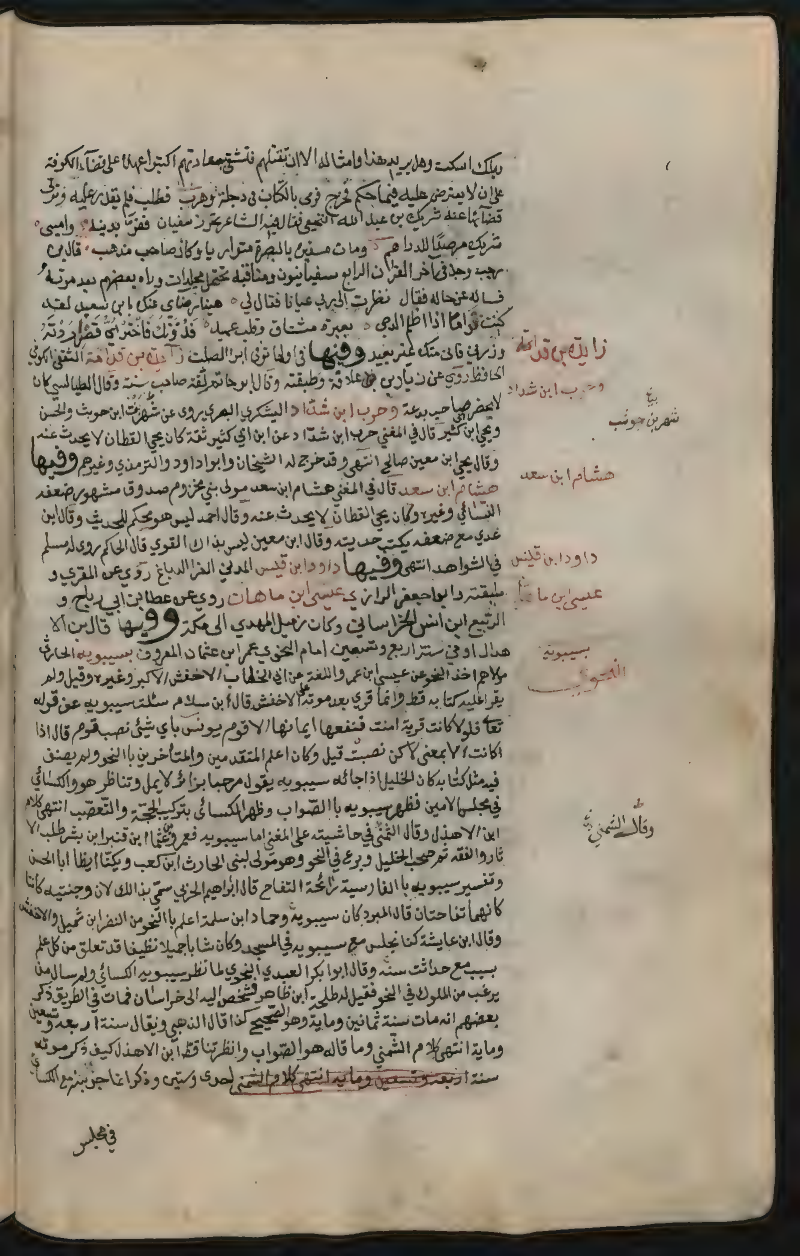 ويلك اسكت وهل يريد هذا وامثاله الا ان تقتلهم فتشقى بسعادتهم اكتبوا عهده على قضاء الكوفة
على ان لا يعترض عليه فيها حكم فخرج فرمى بالكتاب في دجلة وهرب فطلب فلم يقدر عليه وتولى
قضائها عنه شريك بن عبد الله النخعي فقال فيه الشاعر تحرز سفيان ففز بدينه وامسى
شريك مرصدًا للدراهم ومات سفين بالبصرة متواريا وكان صاحب مذهب قال ابن
رجب وجد في آخر القرن الرابع سفيانيون ومناقبه تحتمل مجلدات وراه بعضهم بعد موته
فساله عن حاله فقال نظرت الى ربي عيانا فقال لي هنيئا رضاي عنك يا ابن سعيد لقد
كنت قواما اذا اظلم الدجى بعبرة مشتاق وقلب عميد فدونك فاختر اي قصر اردته
وزرني فاني منك غير بعيد وفيها في اولها توفى ابو الصلت زائدة بن قدامة الثقفي الكوفي
الحافظ روى عن زياد بن علاقة وطبقته وقال ابو حاتم ثقة صاحب سنة وقال الطيالسي كان
لا يحدث صاحب بدعة وحرب ابن شداد اليشكري البصري روى عن شهر بن حوشب والحسن
ويحيى ابن كثير قال في المغني حرب ابن شداد عن ابن ابي كثير ثقة كان يحيى القطان لا يحدث عنه
وقال يحيى ابن معين صالح انتهى وقد خرج له الشيخان وابو داود والترمذي وغيرهم وفيها
هشام ابن سعد قال في المغني هشام ابن سعد مولى بني مخزوم صدوق مشهور ضعفه
النسائي وغيره وكان يحيى القطان لا يحدث عنه وقال احمد ليس هو محكم للحديث وقال ابن
عدي مع ضعفه يكتب حديثه وقال ابن معين ليس بذاك القوي قال الحاكم روى له مسلم
في الشواهد انتهى وفيها داود ابن قيس المدني الفرا الدباغ روى عن المقري و
طبقته وابو جعفر الرازي عيسى ابن ماهان روى عن عطا ابن ابي رباح و
الربيع ابن انس الخراساني وكان زميل المهدي الى مكة وفيها قال ابن الا
هدل او في سنة اربع وتسعين امام النحو عمر ابن عثمان المعروف بسيبويه الحارثي
مولاهم اخذ النحو عن عيسى ابن عمر واللغة عن ابي الخطاب الاخفش الاكبر وغيره وقيل ولم
يقرا عليه كتابه قط وانما قرئ بعد موته على الاخفش قال ابن سلام سئلت سيبويه عن قوله
تعالى فلولا كانت قرية امنت فنفعها ايمانها الا قوم يونس باي شئ نصب قوم قال اذا
كانت الا بمعنى لاكن نصبت قيل وكان اعلم المتقدمين والمتاخرين با النحو ولم يصنف
فيه مثل كتابه كان الخليل اذا جائه سيبويه يقول مرحبا بزائر لا يمل وتناظر هو والكسائي
في مجلس الامين فظهر سيبويه با الصواب وظهر الكسائي بتركيب الحجة والتعصب انتهى كلام
ابن الاهدل وقال الشمني في حاشيته على المغني اما سيبويه فعمرو ابن عثمان ابن قنبر ابن بشر طلب الا
ثار والفقه ثم صحب الخليل وبرع في النحو وهو مولى لبنى الحارث ابن كعب ويكنا ايظا ابا الحسن
وتفسير سيبويه با الفارسية رائحة التفاح قال ابراهيم الحربي سمى بذالك لان وجنتيه كانتا
كانهما تفاحتان قال المبرد كان سيبويه وحماد ابن سلمة اعلم با النحو من النضر ابن شميل والاخفش
وقال ابن عايشة كنا نجلس مع سيبويه في المسجد وكان شابا جميلا نظيفا قد تعلق من كل علم
بسبب مع حداثت سنه وقال ابوا بكر العبدي النحوي لما نظر سيبويه الكسائي ولم سال من
يرغب من الملوك في النحو فقيل له طلحة ابن ظاهر فشخص اليه الى خراسان فمات في الطريق ذكر
بعضهم انه مات سنة ثمانين وماية وهو الصحيح كذا قال الذهبي ويقال سنة اربعة وتسعين
وماية انتهى كلام الشمني وما قاله هو الصواب وانظر هنا قط ابن الاهدل كيف ذكر موته
سنة اربعة وتسعين وماية انتهى كلام الشمني لحدى وستين وذكر اغا جرى بينه مع الكسائي
في مجلس
زائدة بن قدامة
وحرب ابن شداد
شهر بن حوشب
هشام ابن سعد
داود ابن قيس
عيسى ابن ماهان
سيبويه
النحوي
وقال الشمني